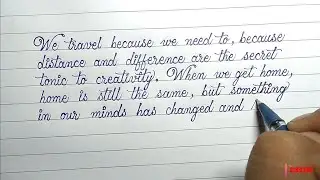 We travel because we need to, because
distance and difference are the secret
tonic to creativity. When we get home,
home is still the same, but something
in our minds has changed and